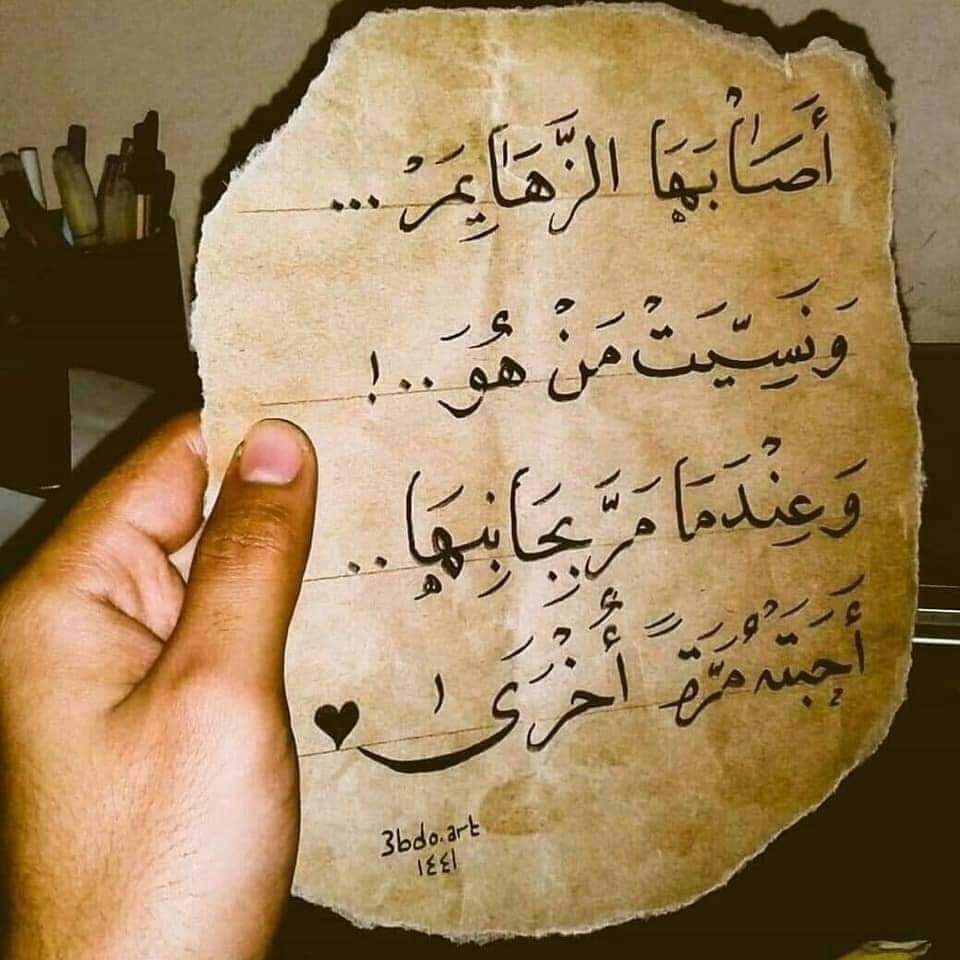 أَصَابَهَا الزَّهَايِمَرْ ...
وَنَسِيَّتْ مَنْ هُوَ ..!
وَعِنْدَمَا مَرَّ بِجَانِبِهَا ..
أَحَبَتهُ مَرَّةً أُخْرَى ! ♥
3bdo.art
١٤٤١